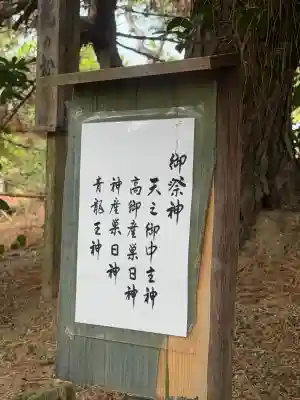 御祭神
天之御中主神
高御産巣日神
神産巣日神
青龍王神